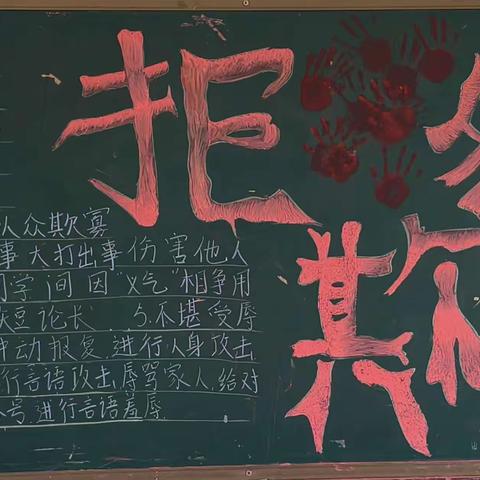 拒
欺
从众欺寡
事大打出事伤害他人
同学间因“义气”相争用
短论长 5.不堪受辱
动报复,进行人身攻击
行言语攻击,辱骂家人,给对
号,进行言语羞辱